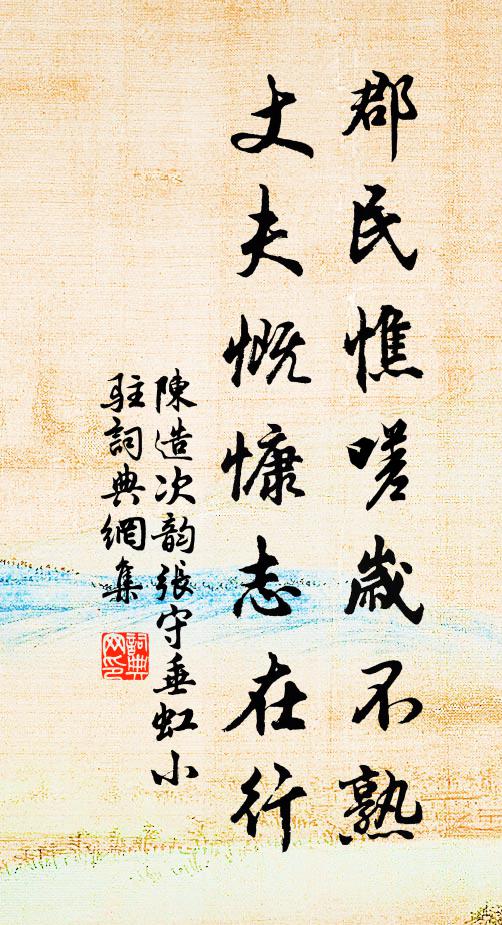 郡民憔嗟歲不熟
丈夫慨慷志在行
陳造次韵張守垂虹小
駐詞典網集
詞典网印